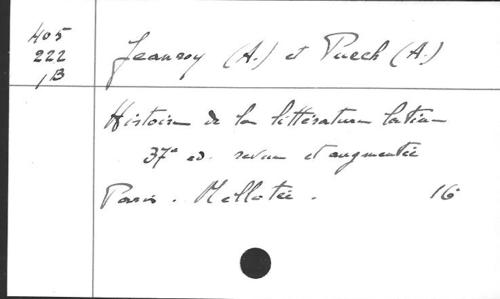 405
222
, B
Jeanroy (A.) et Puech (A.)
Histoire de la littérature latine
37e ed. revue et augmentée
Paris. Mellotée. 16